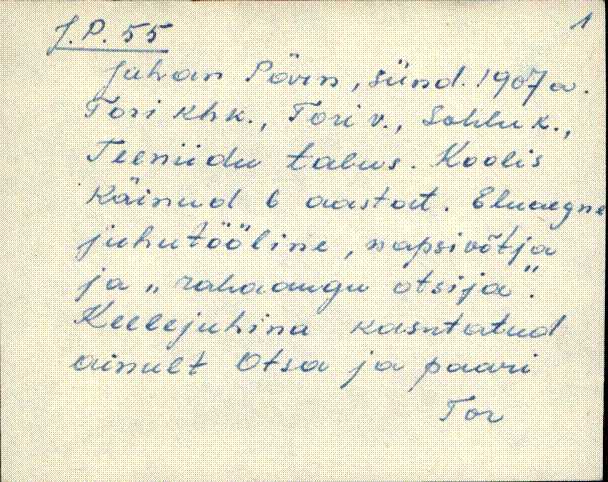 J.P. 55
1
Juhan Pärn, sünd. 1907 a.
Tori khk., Tori v., k.,
Teeniidu talus. Koolis
käinud 6 aastat. Eluaegne
juhutööline, napsivõtja
ja „rahaaugu otsija".
Keelejuhina kasutatud
ainult Otsa ja paari
Tor